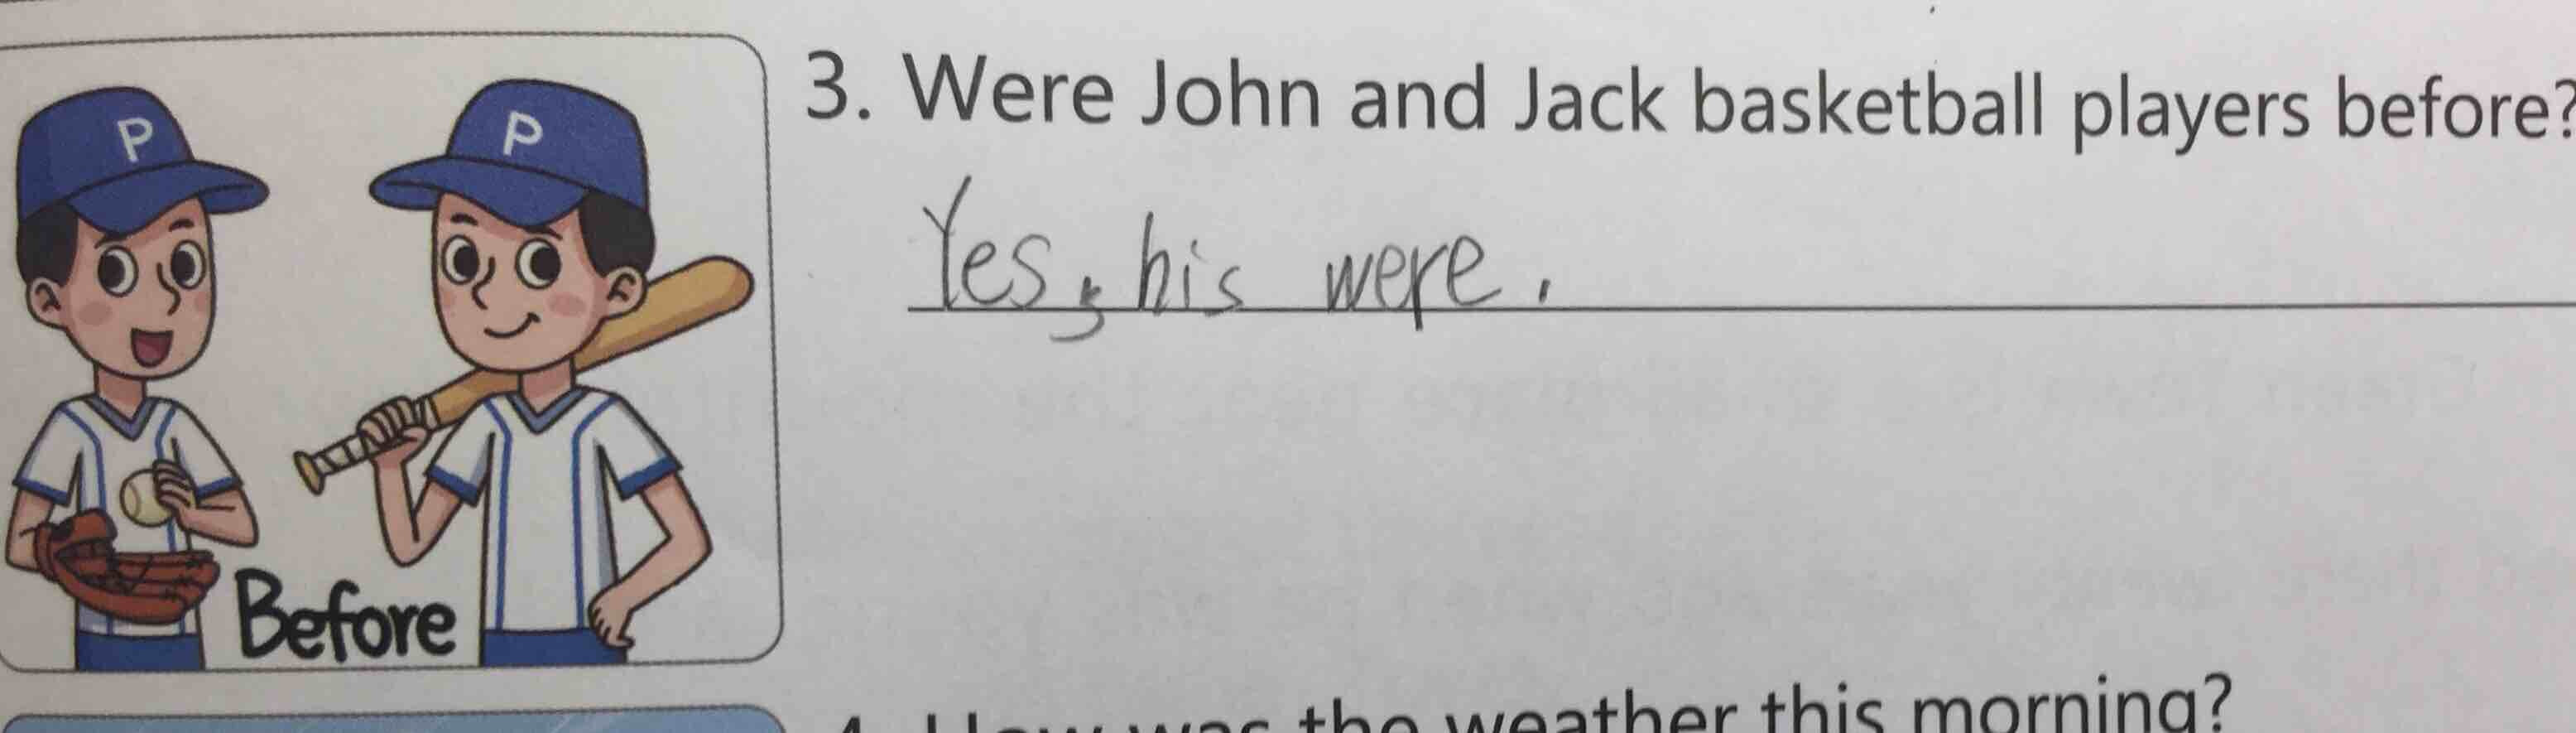 P
P
Before
3. Were John and Jack basketball players before?
Yes, his were.
4. How was the weather this morning?